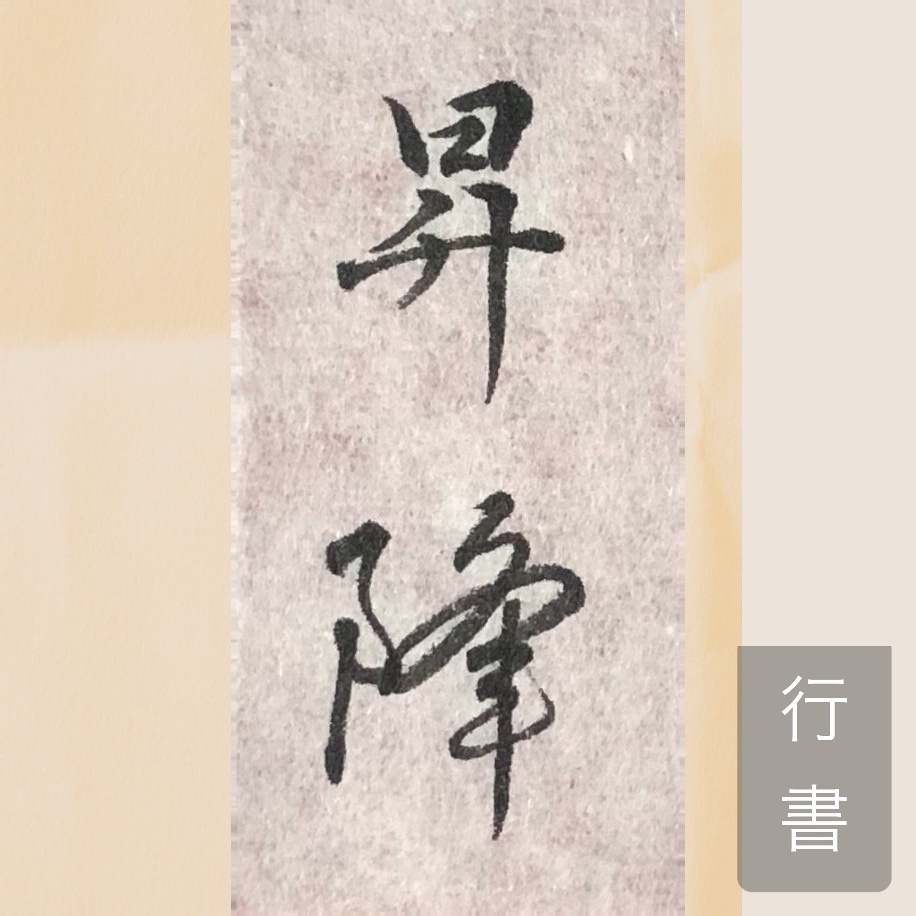 昇降
行書